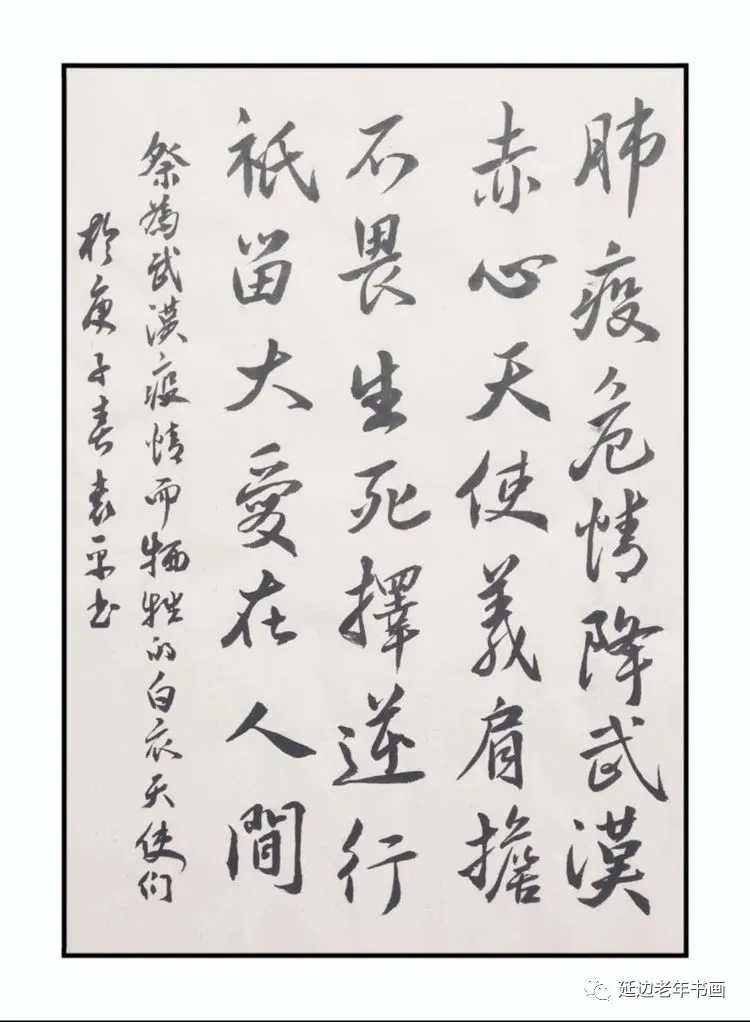 肺疫危情降武漢
赤心天使義肩擔
不畏生死擇逆行
祇留大愛在人間
祭為武漢疫情而牺牲的白衣天使们
於庚子春袁平书
延边老年书画